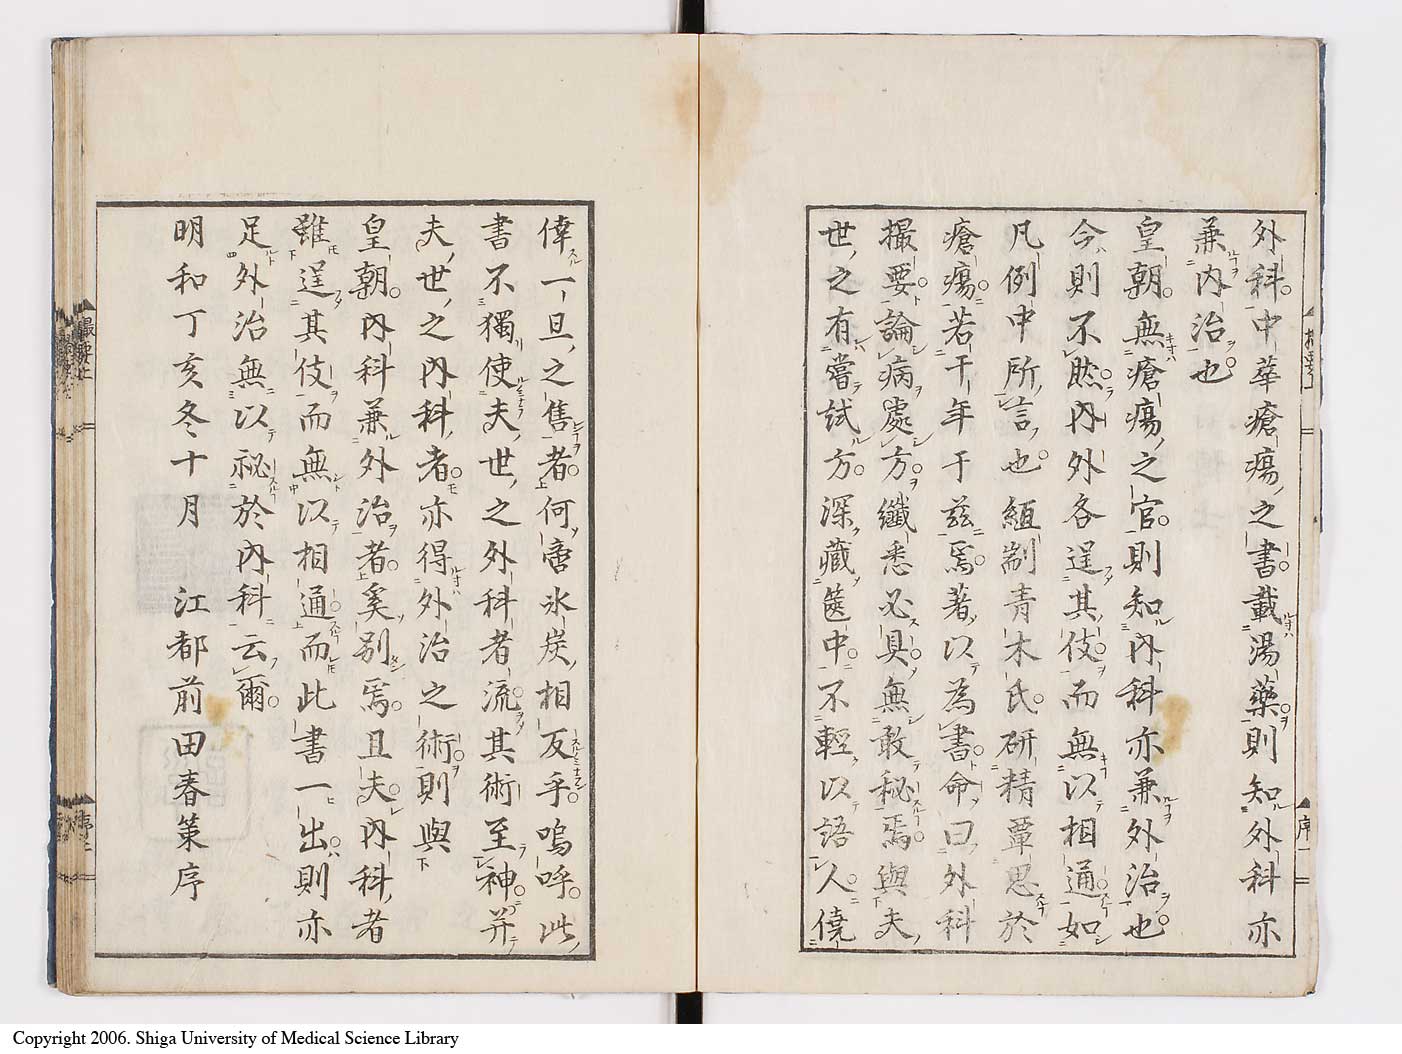 外科中華瘡瘍之書載湯藥則知外科亦
兼内治也
皇朝無瘡瘍之官則知内科亦兼外治也
今則不然内外各逞其伎而無以相通如
凡例中所言也䋎剬青木氏研精覃思於
瘡瘍若干年于茲焉著以為書命曰外科
撮要論病處方纖悉必具無敢秘焉與夫
世之有嘗試方深藏篋中不輕以語人僥
倖一旦之售者何啻氷炭相反乎嗚呼此
書不獨使夫世之外科者流其術至神并
夫世之内科者亦得外治之術則與
皇朝内科兼外治者奚别焉且夫内科者
雖逞其伎而無以相通而此書一出則亦
足外治無以祕於内科云爾
明和丁亥冬十月 江都前田春策序
序一
Copyright 2006. Shiga University of Medical Science Library